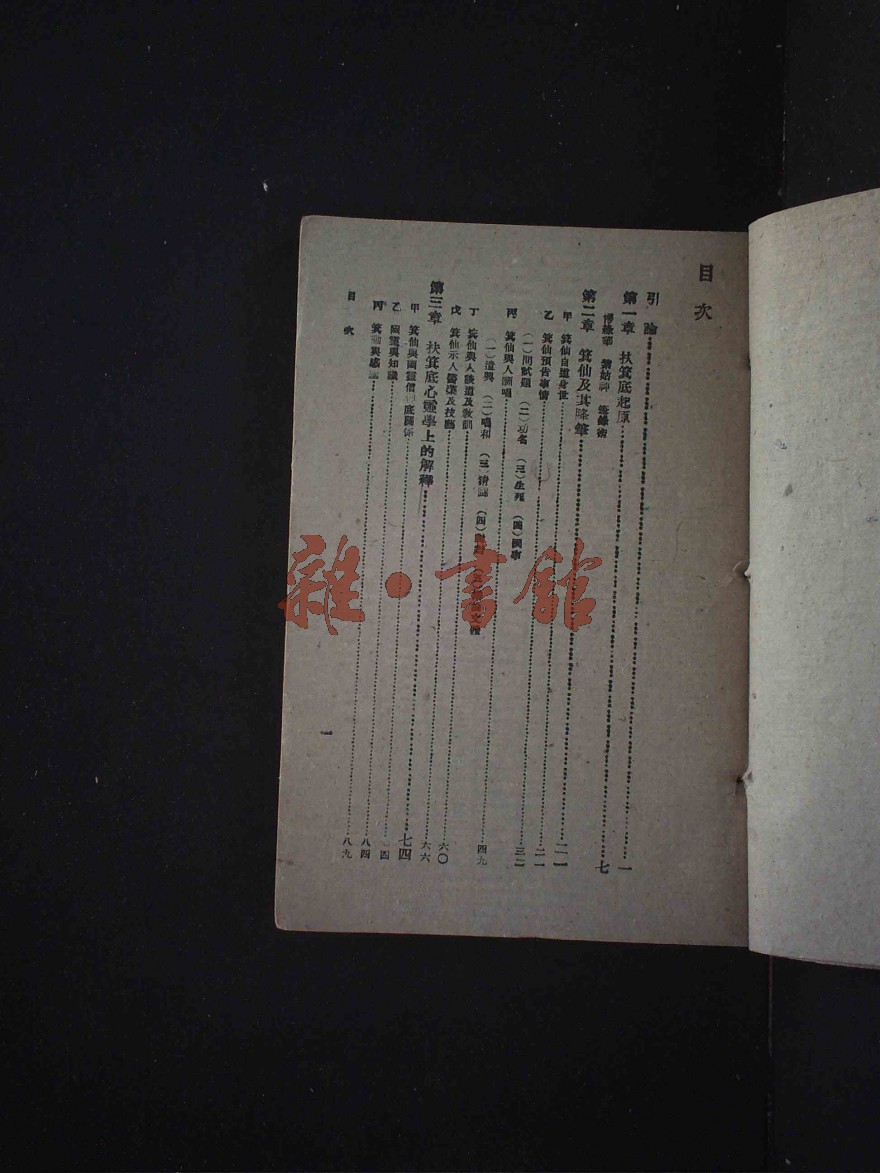 目次
引論
第一章 扶箕底起原……一
第二章 箕仙及其降筆……七
甲 箕仙自道身世
乙 箕仙預告事情……二一
(一)問試題 (二)功名 (三)生死 (四)國事
丙 箕仙與人酬唱……三二
(一)遣興 (二)唱和 (三) (四)
丁 箕仙與人談道及教訓……四九
戊 箕仙示人醫藥及技藝……六〇
第三章 扶箕底心靈學上的解釋……六六
甲 箕仙與幽靈信 底關係……七四
乙 與知識
丙 箕仙與感應……八四
八九
目次
一
雜·書館